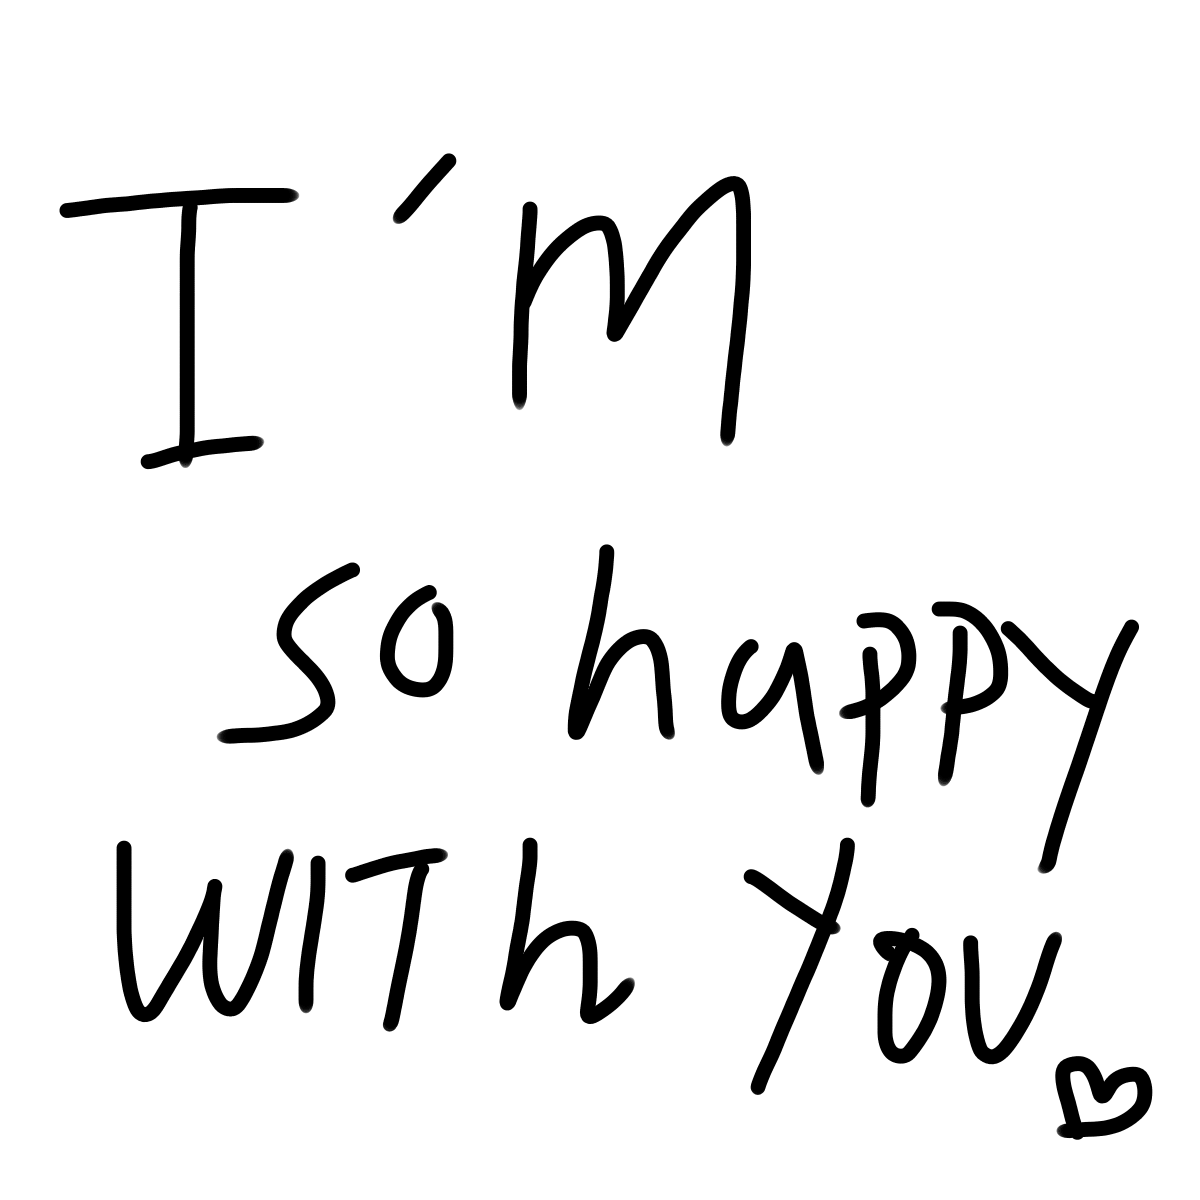 I'M
so happy
WITh YOU